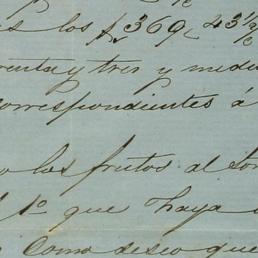 s los $369, 43½
renta y tres y medio
correspondientes á
o los frutos al
1º que haya
Como deseo que